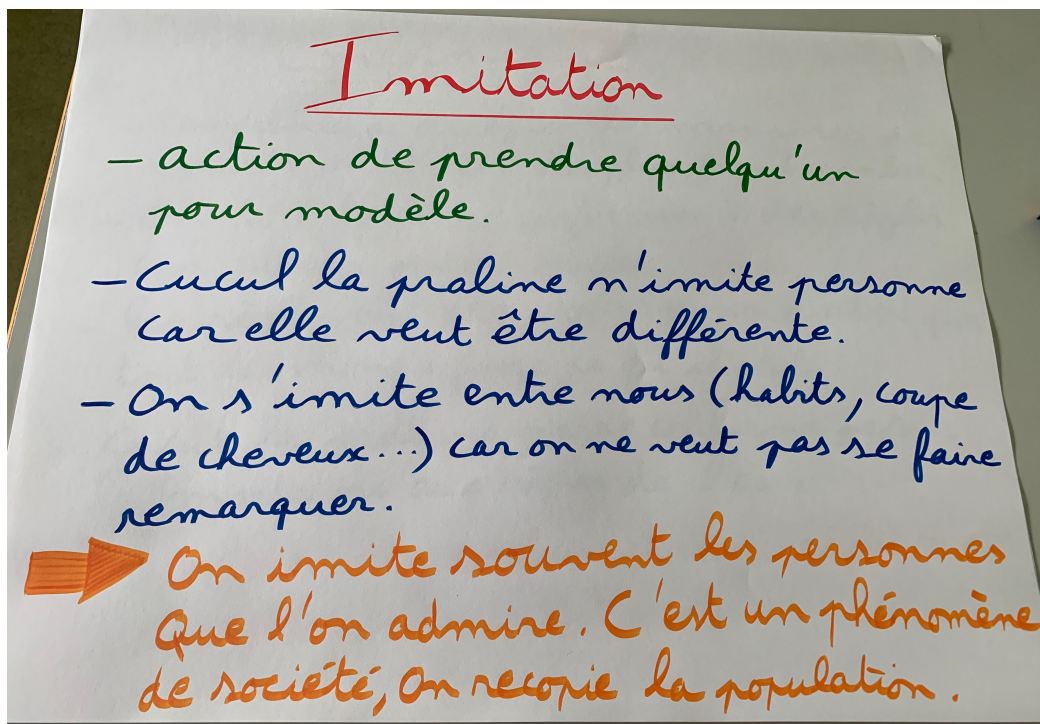 Imitation
- action de prendre quelqu'un
pour modèle.
- Cucul la praline n'imite personne
car elle veut être différente.
- On s'imite entre nous (habits, coupe
de cheveux...) car on ne veut pas se faire
remarquer.
On imite souvent les personnes
Que l'on admire. C'est un phénomène
de société, On recopie la population.